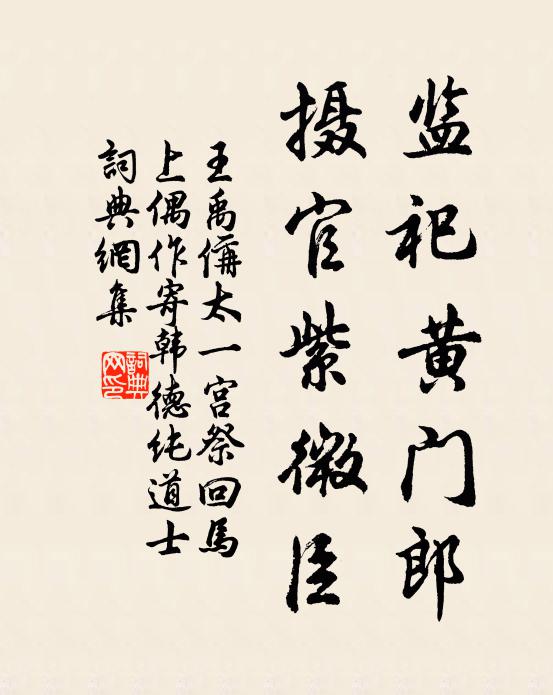 监祀黄门郎
摄官紫微臣
王禹偁太一宫祭回馬
上偶作寄韩德纯道士
詞典網集
詞典網印